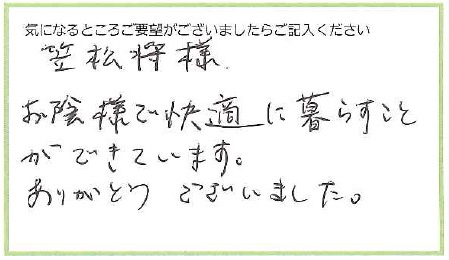 気になるところご要望がございましたらご記入ください
笠松将様
お陰様で快適に暮らすこと
ができています。
ありがとう ございました。